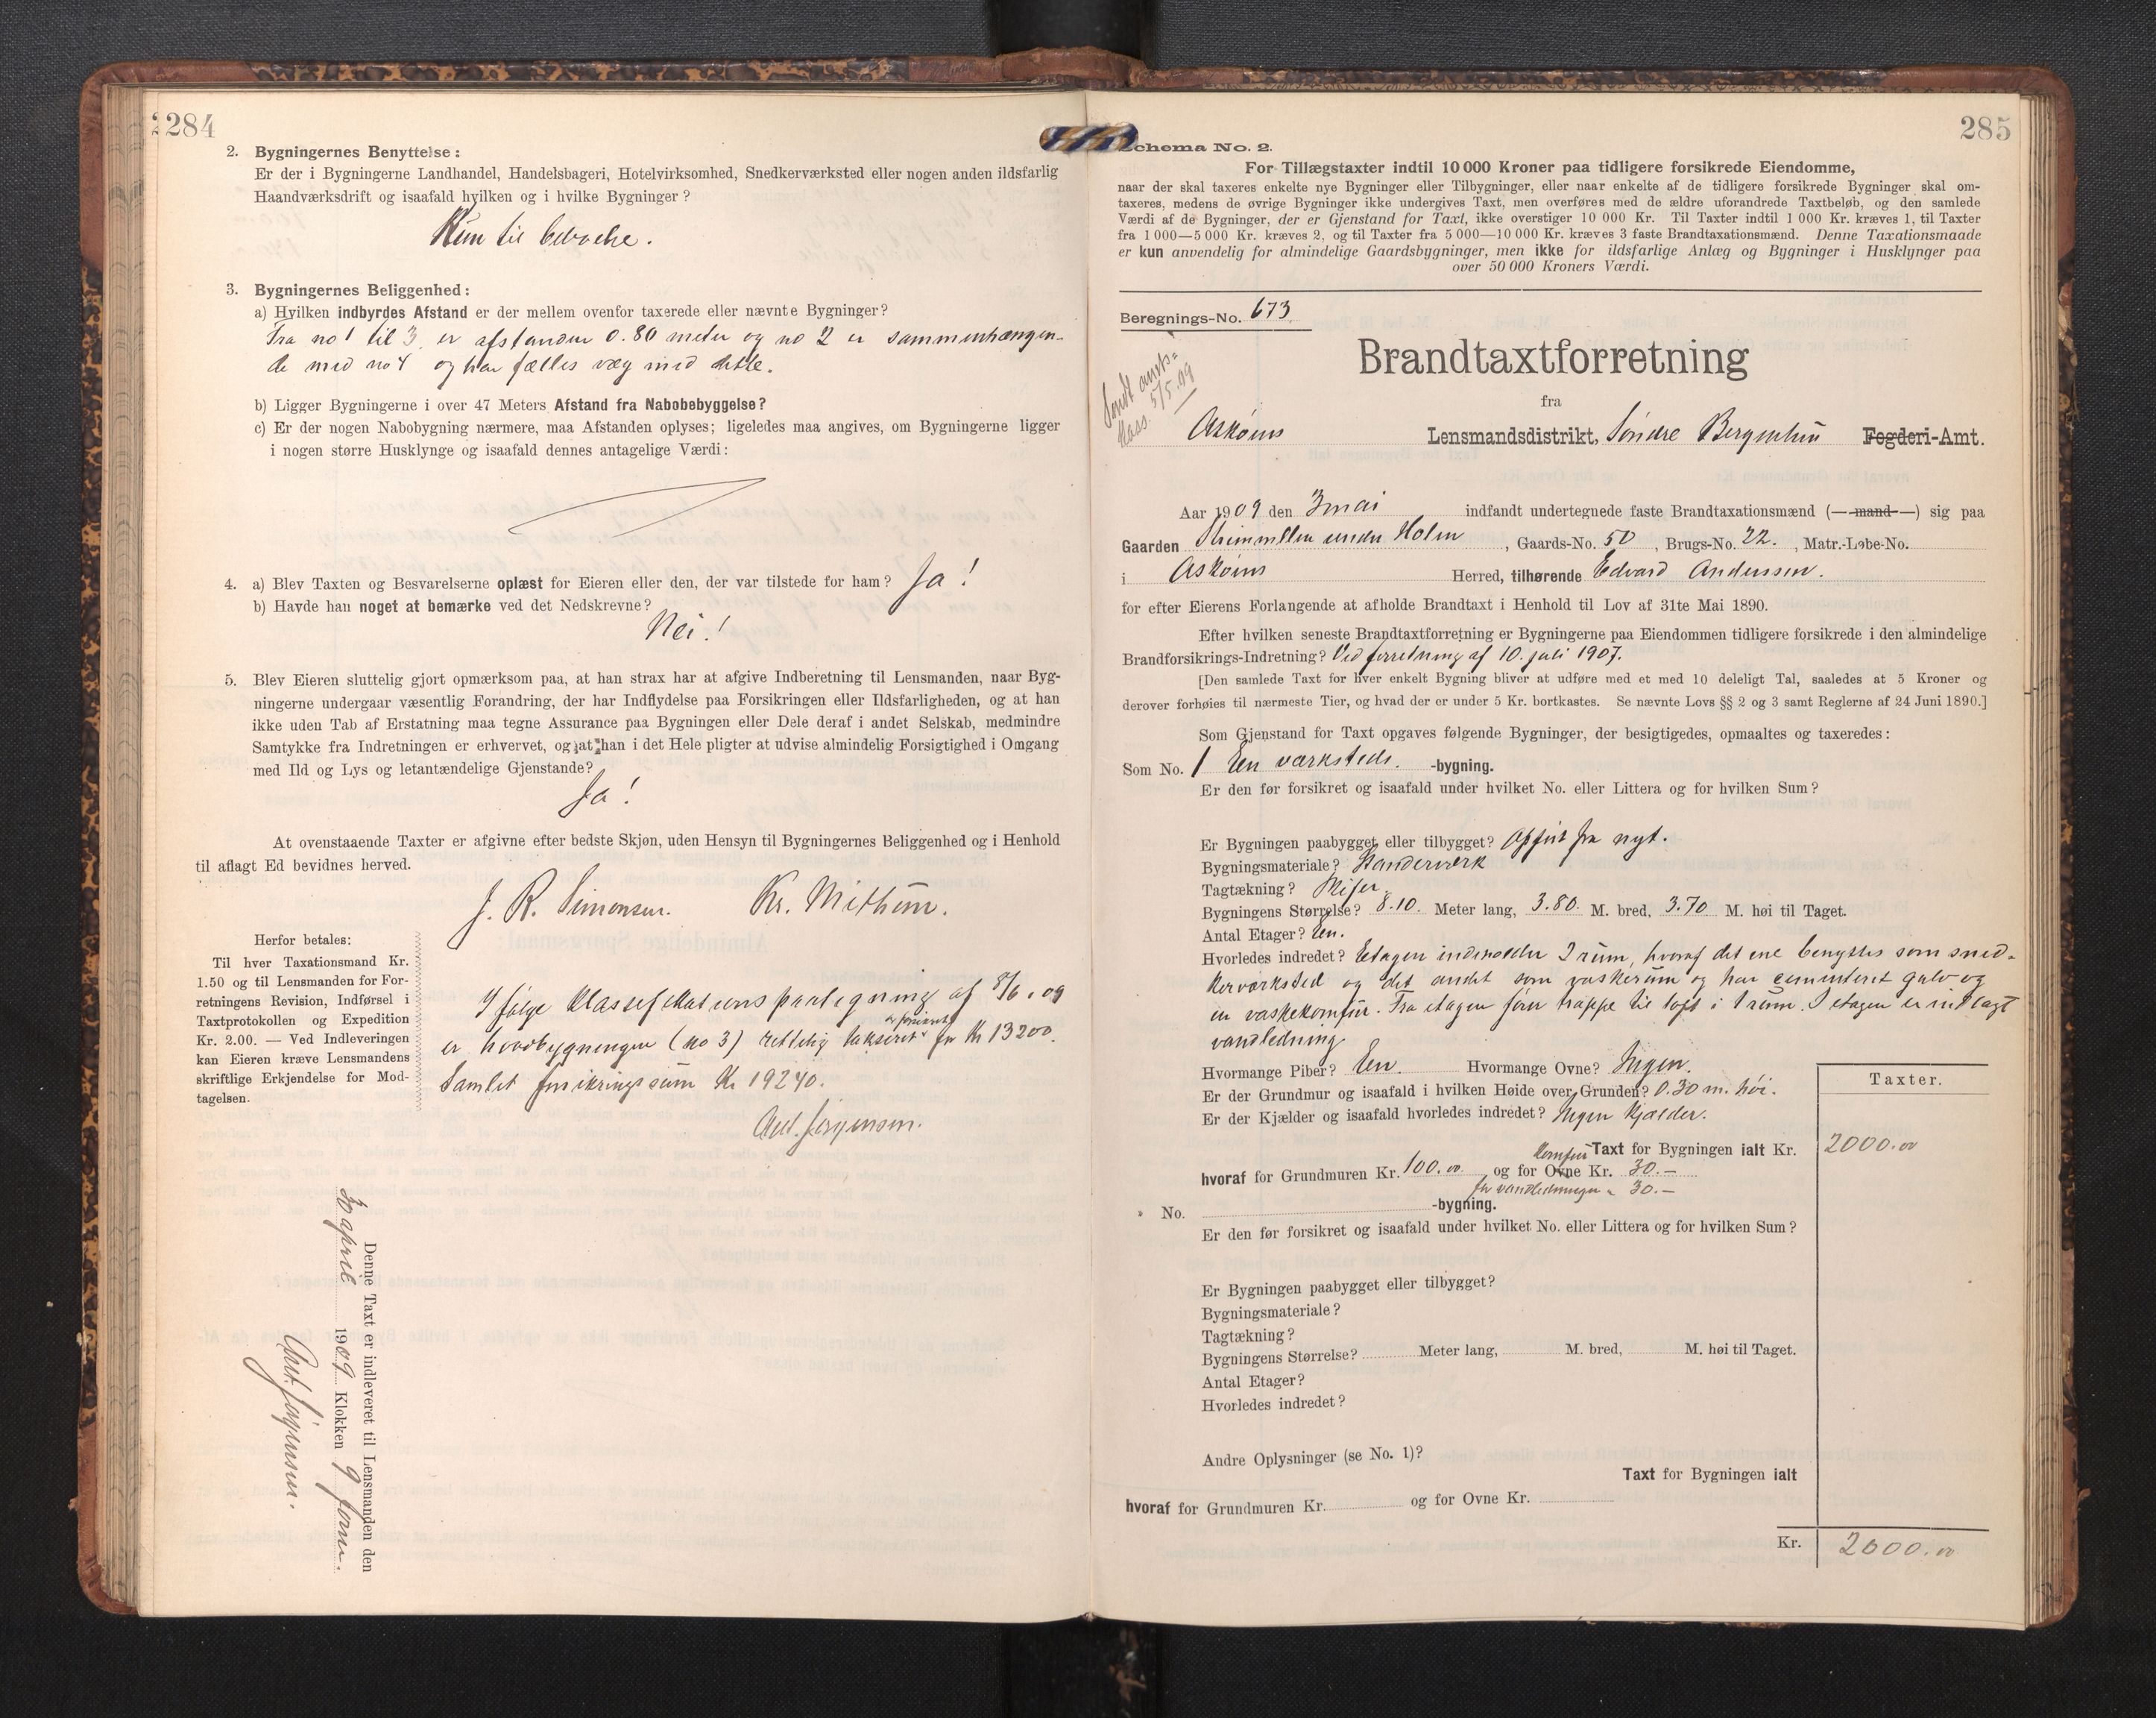 284
2. Bygningernes Benyttelse:
Er der i Bygningerne Landhandel, Handelsbageri, Hotelvirksomhed, Snedkerværksted eller nogen anden ildsfarlig
Haandværksdrift og isaafald hvilken og i hvilke Bygninger?
Kun til beboelse.
3. Bygningernes Beliggenhed:
a) Hvilken indbyrdes Afstand er der mellem ovenfor taxerede eller nævnte Bygninger?
Fra no 1 til 3 er afstanden 0.80 meter og no 2 er sammenhængen-
de med no 4 og har fælles væg med dette.
b) Ligger Bygningerne i over 47 Meters Afstand fra Nabobebyggelse?
c) Er der nogen Nabobygning nærmere, maa Afstanden oplyses; ligeledes maa angives, om Bygningerne ligger
i nogen større Husklynge og isaafald dennes antagelige Værdi:
4. a) Blev Taxten og Besvarelserne oplæst for Eieren eller den, der var tilstede for ham? Ja!
b) Havde han noget at bemærke ved det Nedskrevne?
Nei!
5. Blev Eieren sluttelig gjort opmærksom paa, at han strax har at afgive Indberetning til Lensmanden, naar Byg-
ningerne undergaar væsentlig Forandring, der har Indflydelse paa Forsikringen eller Ildsfarligheden, og at han
ikke uden Tab af Erstatning maa tegne Assurance paa Bygningen eller Dele deraf i andet Selskab, medmindre
Samtykke fra Indretningen er erhvervet, og at han i det Hele pligter at udvise almindelig Forsigtighed i Omgang
med Ild og Lys og letantændelige Gjenstande?
Ja!
At ovenstaaende Taxter er afgivne efter bedste Skjøn, uden Hensyn til Bygningernes Beliggenhed og i Henhold
til aflagt Ed bevidnes herved.
J. R. Simonsen. Kr. Mithun.
Herfor betales:
Til hver Taxationsmand Kr.
1.50 og til Lensmanden for For-
retningens Revision, Indførsel i
Taxtprotokollen og Expedition
Kr. 2.00. — Ved Indleveringen
kan Eieren kræve Lensmandens
skriftlige Erkjendelse for Mod-
tagelsen.
Ifølge Klassefikationspaategning af 8/6 09
er forsikret
er hovedbygningen (no 3) rettelig takseret for Kr 13200.
Samlet forsikringssum Kr 19240.
And. Jørgensen.
Denne Taxt er indleveret til Lensmanden den
30 april 1909 Klokken 9 form.
And. Jørgensen.
285
Schema No. 2.
For Tillægstaxter indtil 10 000 Kroner paa tidligere forsikrede Eiendomme,
naar der skal taxeres enkelte nye Bygninger eller Tilbygninger, eller naar enkelte af de tidligere forsikrede Bygninger skal om-
taxeres, medens de øvrige Bygninger ikke undergives Taxt, men overføres med de ældre uforandrede Taxtbeløb, og den samlede
Værdi af de Bygninger, der er Gjenstand for Taxt, ikke overstiger 10 000 Kr. Til Taxter indtil 1 000 Kr. kræves 1, til Taxter
fra 1 000—5 000 Kr. kræves 2, og til Taxter fra 5 000—10 000 Kr. kræves 3 faste Brandtaxationsmænd. Denne Taxationsmaade
er kun anvendelig for almindelige Gaardsbygninger, men ikke for ildsfarlige Anlæg og Bygninger i Husklynger paa
over 50 000 Kroners Værdi.
Beregnings-No. 673
Sendt
5/5. 09
Brandtaxtforretning
fra
Askøens Lensmandsdistrikt, Søndre Bergenhus Fogderi-Amt.
Aar 1909 den 3 mai indfandt undertegnede faste Brandtaxationsmænd (— mand —) sig paa
Gaarden under Holen, Gaards-No. 50, Brugs-No. 22., Matr.-Løbe-No.
i Askøens Herred, tilhørende Edvard Anderssen.
for efter Eierens Forlangende at afholde Brandtaxt i Henhold til Lov af 31te Mai 1890.
Efter hvilken seneste Brandtaxtforretning er Bygningerne paa Eiendommen tidligere forsikrede i den almindelige
Brandforsikrings-Indretning? Ved forretning af 10. juli 1907.
[Den samlede Taxt for hver enkelt Bygning bliver at udføre med et med 10 deleligt Tal, saaledes at 5 Kroner og
derover forhøies til nærmeste Tier, og hvad der er under 5 Kr. bortkastes. Se nævnte Lovs §§ 2 og 3 samt Reglerne af 24 Juni 1890.]
Som Gjenstand for Taxt opgaves følgende Bygninger, der besigtigedes, opmaaltes og taxeredes:
Som No. 1 En værksteds. -bygning.
Er den før forsikret og isaafald under hvilket No. eller Littera og for hvilken Sum?
Er Bygningen paabygget eller tilbygget? Opført fra nyt.
Bygningsmateriale? Standerverk
Tagtækning? Skifer
Bygningens Størrelse? 8.10. Meter lang, 3.80. M. bred, 3.70 M. høi til Taget.
Antal Etager? En.
Hvorledes indredet? Etagen indeholder 2 rum, hvoraf det ene benyttes som sned-
kerværksted og det andet som vaskerum og har cementeret gulv og
en vaskekomfur. Fra etagen fører trappe til loft i 1 rum. I etagen er indlagt
vandledning
Hvormange Piber? En. Hvormange Ovne? Ingen.
Er der Grundmur og isaafald i hvilken Høide over Grunden? 0.30 m. høi.
Er der Kjælder og isaafald hvorledes indredet? Ingen kjælder.
Taxter.
Taxt for Bygningen ialt Kr. 2000.00
komfur
hvoraf for Grundmuren Kr. 100.00 og for Ovne Kr. 30.—
for vandledningen " 30.—
No. -bygning.
Er den før forsikret og isaafald under hvilket No. eller Littera og for hvilken Sum?
Er Bygningen paabygget eller tilbygget?
Bygningsmateriale?
Tagtækning?
Bygningens Størrelse? Meter lang, M. bred, M. høi til Taget.
Antal Etager?
Hvorledes indredet?
Andre Oplysninger (se No. 1)?
Taxt for Bygningen ialt
hvoraf for Grundmuren Kr. og for Ovne Kr.
Kr. 2000.00